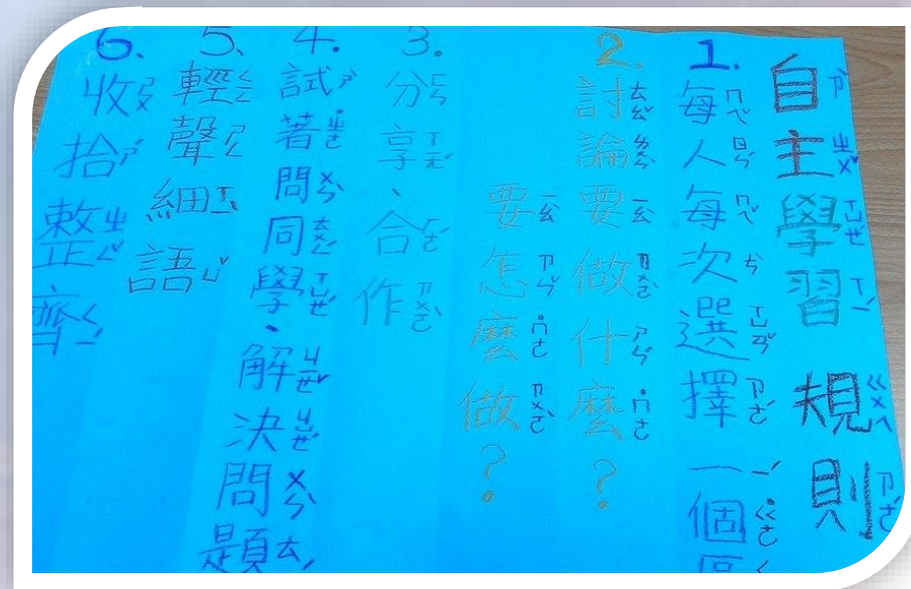 自主學習 規則
1.每人每次選擇一個
2.討論要做什麼?
要怎麼做?
3.分享、合作
4.試著問同學、解決問題
5.輕聲細語
6.收拾整齊